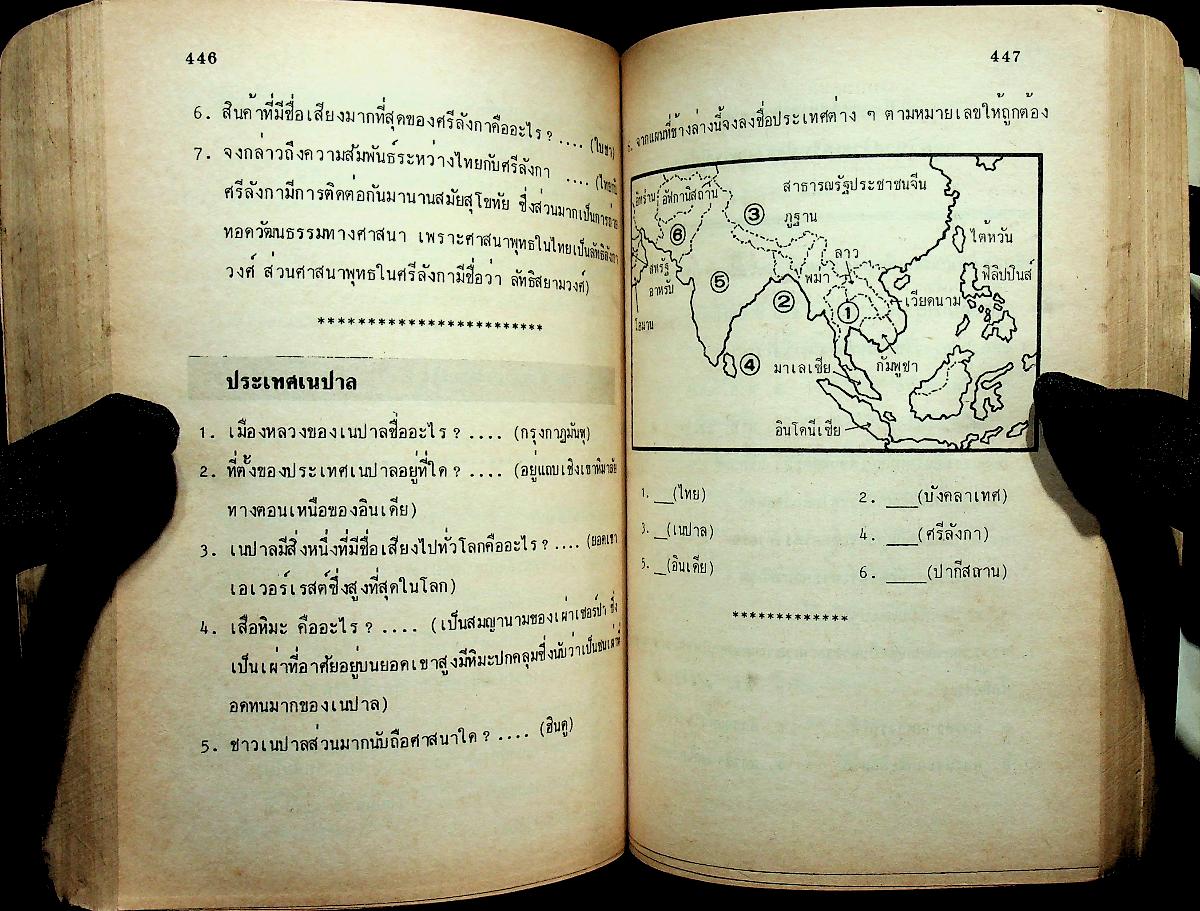 446
6. สินค้าที่มีชื่อเสียงมากที่สุดของศรีลังกาคืออะไร ? .... (ใบชา)
7. จงกล่าวถึงความสัมพันธ์ระหว่างไทยกับศรีลังกา .... (ไทยกับ
ศรีลังกามีการติดต่อกันมานานสมัยสุโขทัย ซึ่งส่วนมากเป็นการถ่าย
ทอดวัฒนธรรมทางศาสนา เพราะศาสนาพุทธในไทยเป็นลัทธิลังกา
วงศ์ ส่วนศาสนาพุทธในศรีลังกามีชื่อว่า ลัทธิสยามวงศ์)
************************
ประเทศเนปาล
1. เมืองหลวงของเนปาลชื่ออะไร ? .... (กรุงกาฏมันฑุ)
2. ที่ตั้งของประเทศเนปาลอยู่ที่ใด ? .... (อยู่แถบเชิงเขาหิมาลัย
ทางตอนเหนือของอินเดีย)
3. เนปาลมีสิ่งหนึ่งที่มีชื่อเสียงไปทั่วโลกคืออะไร ? .... (ยอดเขา
เอเวอร์เรสต์ซึ่งสูงที่สุดในโลก)
4. เสือหิมะ คืออะไร ? .... (เป็นสมญานามของเผ่าเชอร์ปา ซึ่ง
เป็นเผ่าที่อาศัยอยู่บนยอดเขาสูงมีหิมะปกคลุมซึ่งนับว่าเป็นชนเผ่าที่
อดทนมากของเนปาล)
5. ชาวเนปาลส่วนมากนับถือศาสนาใด ? .... (ฮินดู)
447
จากแผนที่ข้างล่างนี้จงลงชื่อประเทศต่าง ๆ ตามหมายเลขให้ถูกต้อง
อิหร่าน
อัฟกานิสถาน
สาธารณรัฐประชาชนจีน
3
ภูฐาน
6
ไต้หวัน
ลาว
สหรัฐ
อาหรับ
5
พม่า
ฟิลิปปินส์
2
1
เวียดนาม
โอมาน
4
มาเลเซีย
กัมพูชา
อินโดนีเซีย
1. __(ไทย)
2. ____(บังคลาเทศ)
3. _(เนปาล)
4. ____(ศรีลังกา)
5. _(อินเดีย)
6. _____(ปากีสถาน)
*************